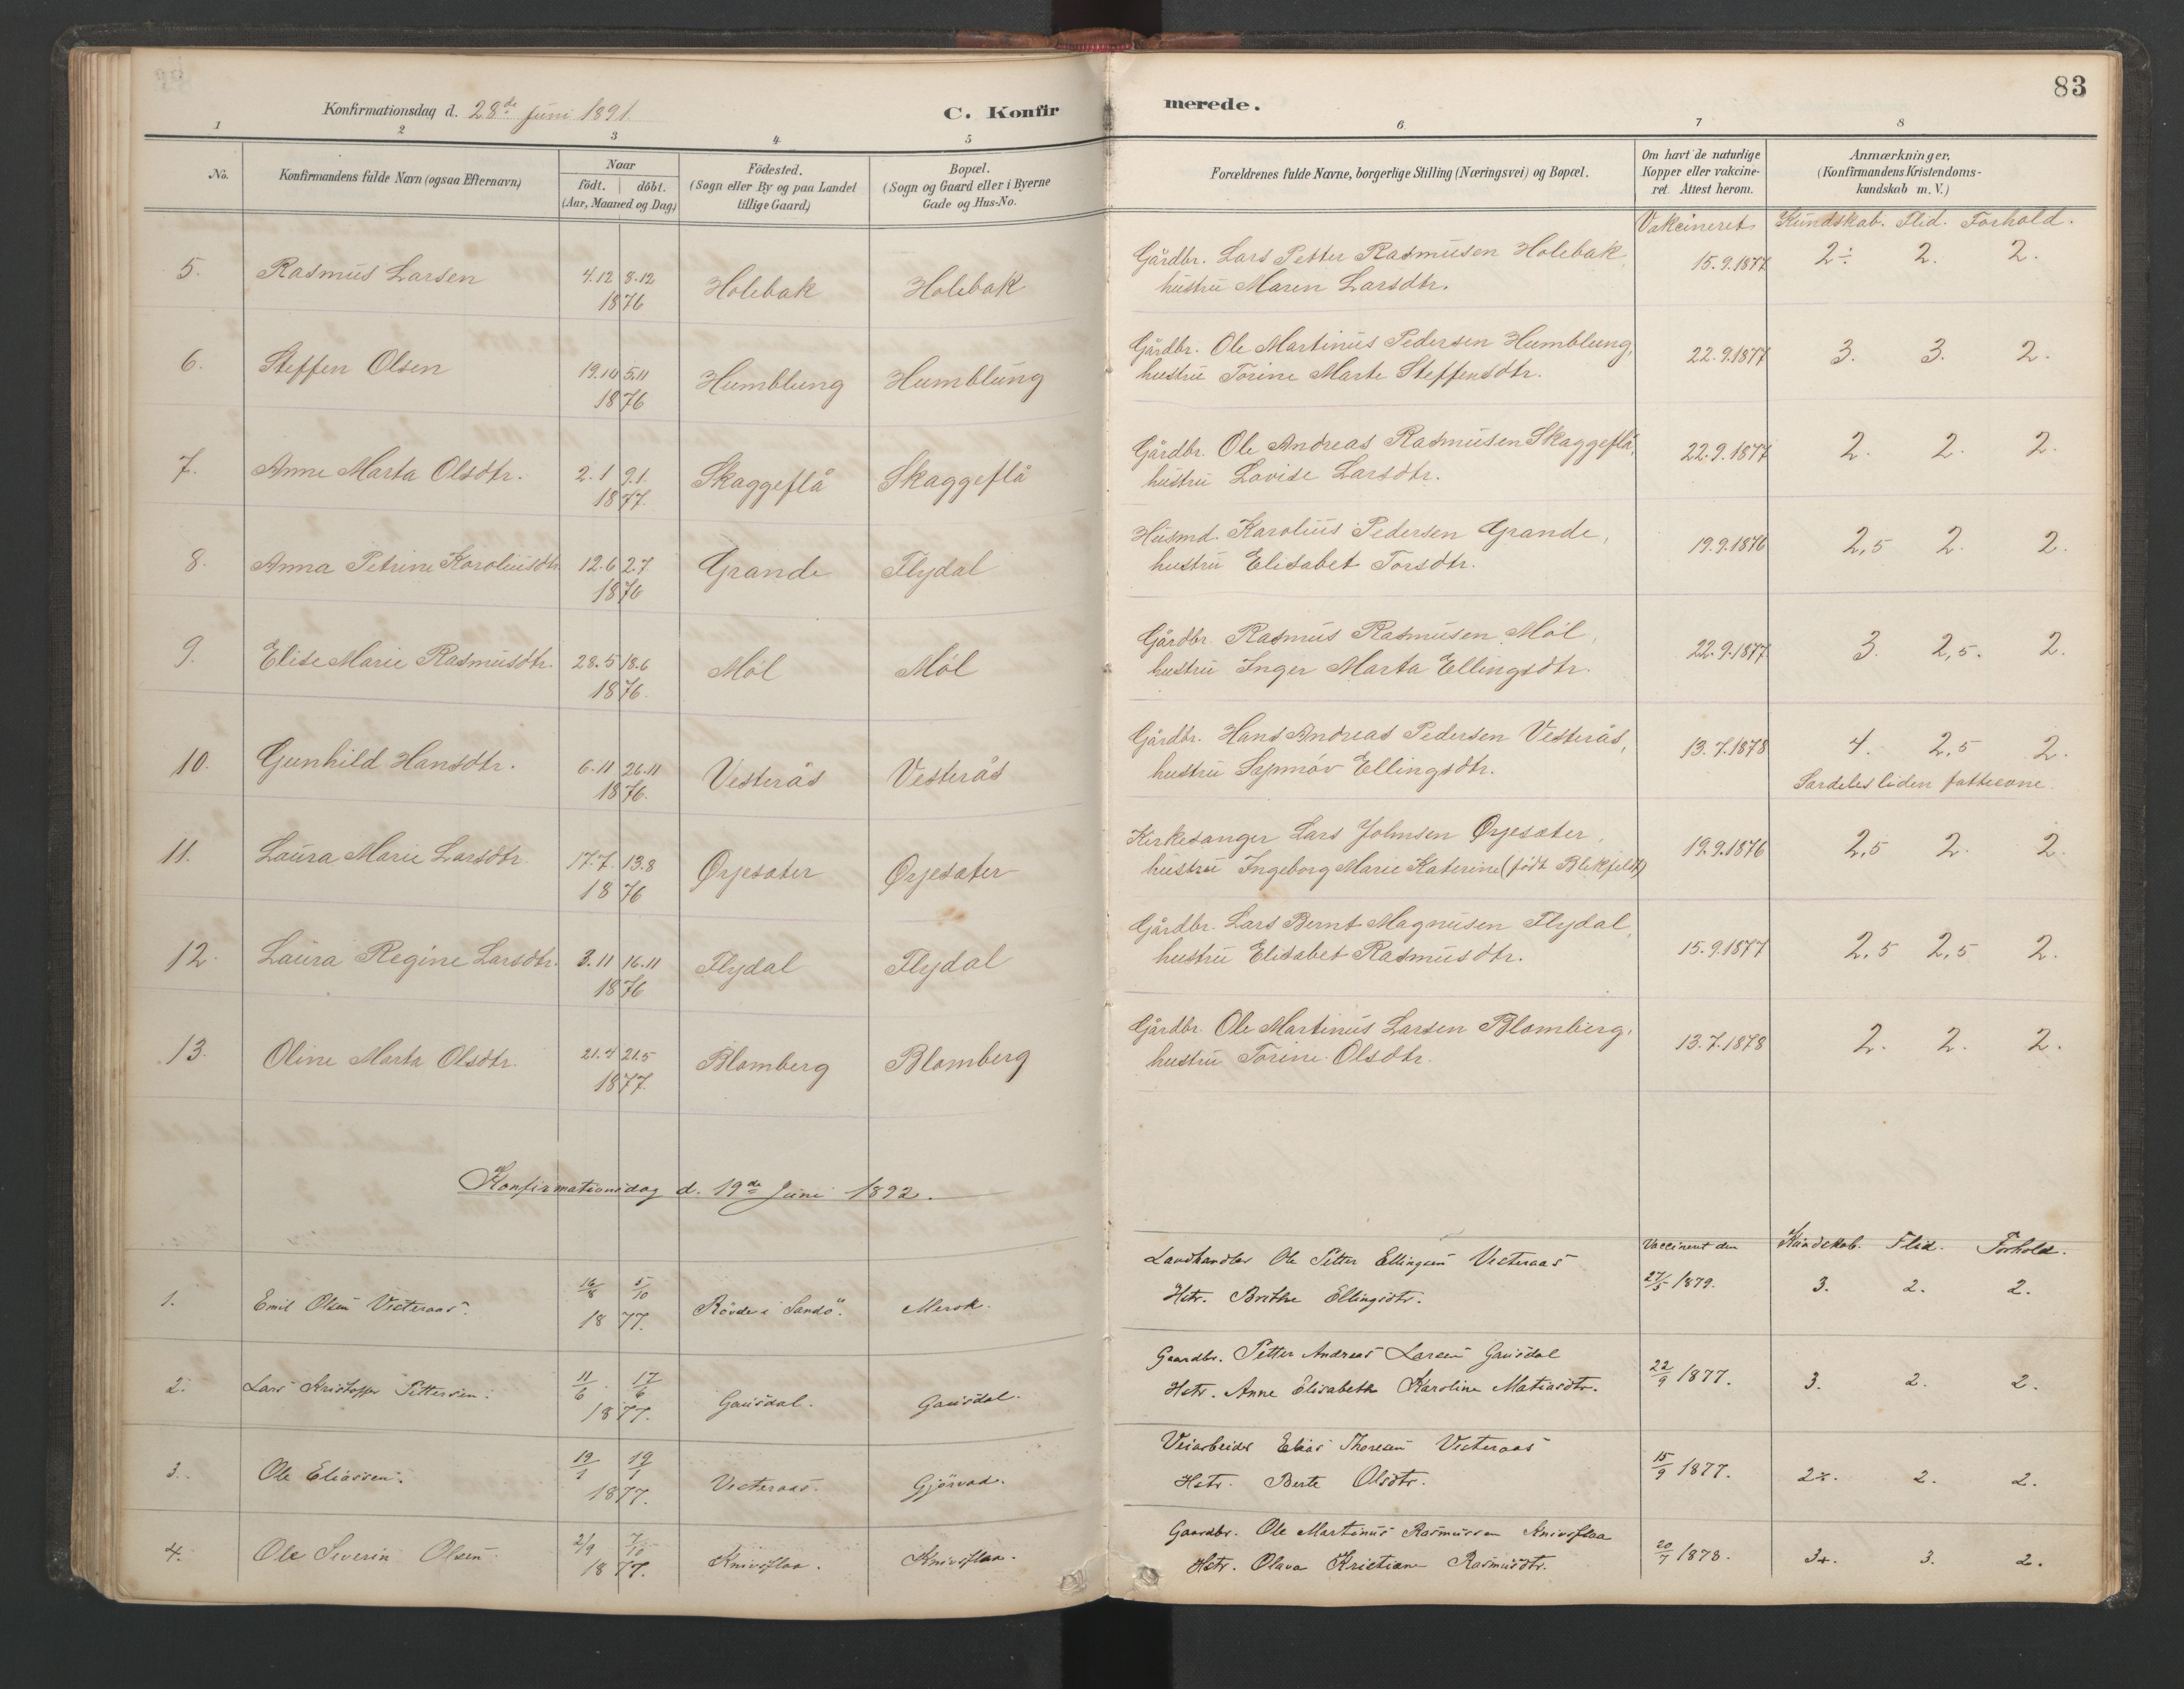 83
Konfirmationsdag d. 28de Juni 1891.
C. Konfirmerede.
1 2 3 4 5 6 7 8
No. Konfirmandens fulde Navn (ogsaa Efternavn) Naar födt. döbt. (Aar, Maaned og Dag) Födested. (Sogn eller By og paa Landet tillige Gaard) Bopæl. (Sogn og Gaard eller i Byerne Gade og Hus-No. Forældrenes fulde Navne, borgerlige Stilling (Næringsvei) og Bopæl. Om havt de naturlige Kopper eller vakcineret. Attest herom. Anmærkninger, (Konfirmandens Kristendomskundskab m. V.)
Vakcineret Kundskab. Flid. Forhold.
5. Rasmus Larsen 4.12 8.12 1876 Holebak Holebak Gårdbr. Lars Petter Rasmusen Holebak, 15.9.1877 2÷ 2. 2.
hustru Maren Larsdtr.
6. Steffen Olsen 19.10 5.11 1876 Humblung Humblung Gårdbr. Ole Martinus Pedersen Humblung, 22.9.1877 3. 3. 2.
hustru Torine Marte Steffensdtr.
7. Anne Marta Olsdtr. 2.1 9.1. 1877. Skaggeflå Skaggeflå Gårdbr. Ole Andreas Rasmusen Skaggeflå, 22.9.1877 2. 2. 2.
hustru Lovise Larsdtr.
8. Anna Petrine Karoliusdtr. 12.6 2.7 1876 Grande Flydal Husmd. Karolius Pedersen Grande, 19.9.1876 2,5 2. 2.
hustru Elisabet Torsdtr.
9. Elise Marie Rasmusdtr. 28.5 18.6 1876. Möl Möl Gårdbr. Rasmus Rasmusen Möl, 22.9.1877 3. 2,5. 2.
hustru Inger Marta Ellingsdtr.
10. Gunhild Hansdtr. 6.11 26.11 1876. Vesterås Vesterås Gårdbr. Hans Andreas Pedersen Vesterås, 13.7.1878 4. 2,5 2.
hustru Ellingsdtr. Særdeles liden fatteevne.
11. Laura Marie Larsdtr. 17.7. 13.8 1876 Ørjesæter Ørjesæter Kirkesanger Lars Johnsen Ørjesæter, 19.9.1876 2,5 2. 2.
hustru Ingeborg Marie Katerine (født Blikfeldt)
12. Laura Regine Larsdtr. 3.11 16.11 1876 Flydal Flydal Gårdbr. Lars Bernt Magnusen Flydal, 15.9.1877 2,5 2,5 2.
hustru Elisabet Rasmusdtr.
13. Oline Marta Olsdtr. 21.4 21.5 1877. Blomberg Blomberg Gårdbr. Ole Martinus Larsen Blomberg, 13.7.1878 2. 2. 2.
hustru Torine Olsdtr.
Konfirmationsdag d. 19de Juni 1892.
Vaccineret den Kundskab. Flid. Forhold.
1. Emil Olsen Vesteraas. 16/8 5/10 1877. Rövde i Sandö. Merok. Landhandler Ole Petter Ellingsen Vesteraas 27/5 1879. 3. 2. 2.
Hstr. Brithe Ellingsdtr.
2. Lars Kristoffer Pettersen. 11/6 17/6 1877. Gausdal. Gausdal. Gaardbr. Petter Andreas Larsen Gausdal 22/9 1877. 3. 2. 2.
Hstr. Anne Elisabeth Karoline Matiasdtr.
3. Ole Eliassen. 19/1 19/1 1877. Vesteraas. Gjörvad. Veiarbeider Elias Thoresen Vesteraas 15/9 1877. 2 2. 2.
Hstr. Berte Olsdtr.
4. Ole Severin Olsen 2/9 7/10 1877. Knivsflaa. Knivsflaa. Gaardbr. Ole Martinus Rasmussen Knivsflaa 20/7 1878. 3+. 3. 2.
Hstr. Olava Kristiane Rasmusdtr.